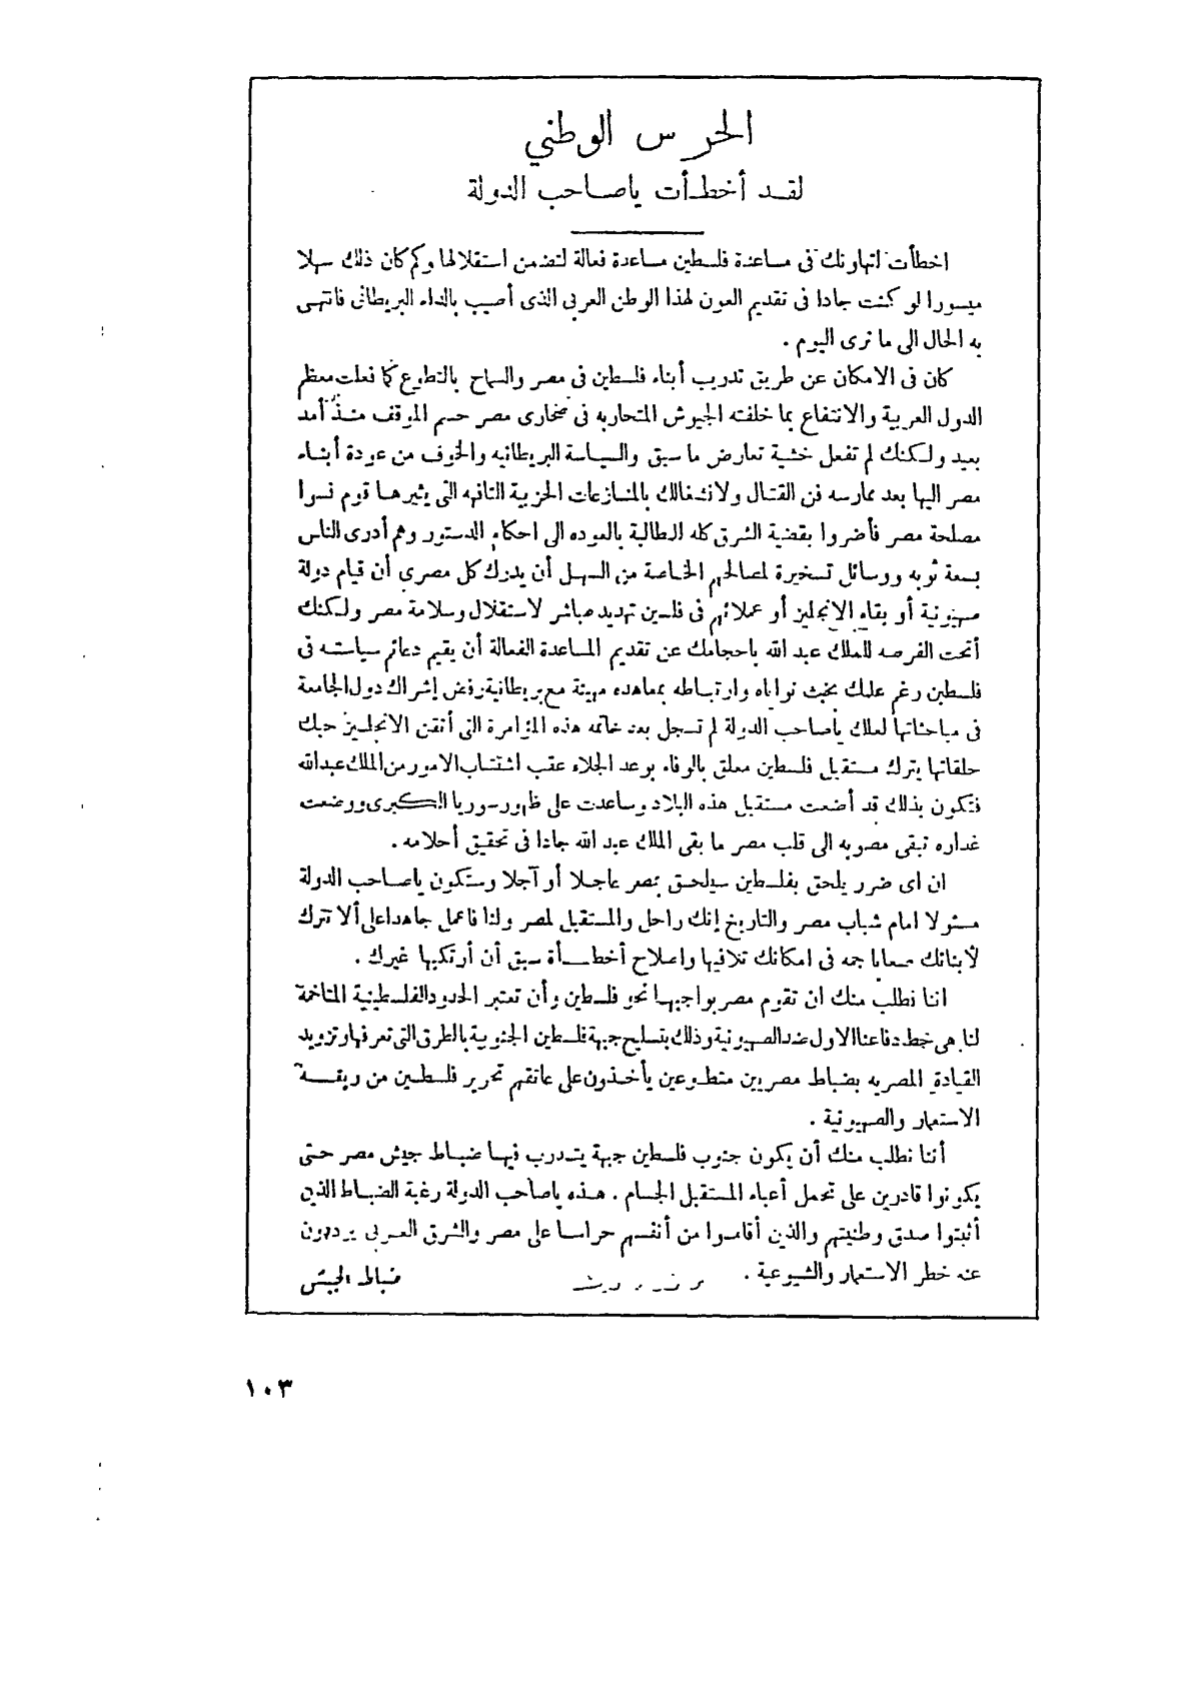 الحرس الوطني
لقد أخطأت ياصاحب الدولة
اخطأت لتهاونك فى مساعدة فلسطين مساعدة فعالة لتضمن استقلالها وكم كان ذلك سهلا
ميسورا لو كنت جادا فى تقديم العون لهذا الوطن العربى الذى أصيب بالداء البريطانى فانتهى
به الحال الى ما ترى اليوم .
كان فى الامكان عن طريق تدريب أبناء فلسطين فى مصر والسماح بالتطوع كما فعلت معظم
الدول العربية والانتفاع بما خلفته الجيوش المتحاربه فى صحارى مصر حسم الموقف منذ أمد
بعيد ولكنك لم تفعل خشية تعارض ما سبق والسياسة البريطانيه والخوف من عودة أبناء
مصر اليها بعد ممارسه فن القتال ولانشغالك بالمنازعات الحزبية التافهه التى يثيرها قوم نسوا
مصلحة مصر فأضروا بقضية الشرق كله المطالبة بالعوده الى احكام الدستور وهم أدرى الناس
بسعة ثوبه ووسائل تسخيرة لمصالحهم الخاصة من السهل أن يدرك كل مصرى أن قيام دولة
صهيونية أو بقاء الانجليز أو عملائهم فى فلسين تهديد مباشر لاستقلال وسلامة مصر ولكنك
أتحت الفرصه للملك عبد الله باحجامك عن تقديم المساعدة الفعالة أن يقيم دعائم سياسته فى
فلسطين رغم علمك بخبث نواياه وارتباطه بمعاهده مهينة مع بريطانية رفض إشراك دول الجامعة
فى مباحثاتها لعلك ياصاحب الدولة لم تسجل بعد خاتمه هذه المؤامرة التى أتقن الانجليز حبك
حلقاتها بترك مستقبل فلسطين معلق بالوفاء بوعد الجلاء عقب اشتتاب الامور من الملك عبدالله
فتكون بذلك قد أضعت مستقبل هذه البلاد وساعدت على ظهور سوريا الكبرى ووضعت
غداره تبقى مصوبه الى قلب مصر ما بقى الملك عبد الله جادا فى تحقيق أحلامه .
ان اى ضرر يلحق بفلسطين سيلحق بمصر عاجلا أو آجلا وستكون ياصاحب الدولة
مسئولا امام شباب مصر والتاريخ إنك راحل والمستقبل لمصر ولنا فاعمل جاهدا على ألا تترك
لأبنائك صعابا جمه فى امكانك تلافيها واصلاح أخطأة سبق أن أرتكبها غيرك .
اننا نطلب منك ان تقوم مصر بواجبها نحو فلسطين وأن تعتبر الحدود الفلسطينية المتاخمة
لنا هى خط دفاعنا الاول ضد الصهيونية وذلك بتسليح جبهة فلسطين الجنوبية بالطرق التى تعرفها وتزويد
القيادة المصريه بضباط مصريين متطوعين يأخذون على عاتقهم تحرير فلسطين من ربقة
الاستعمار والصهيونية .
أننا نطلب منك أن يكون جنوب فلسطين جبهة يتدرب فيها ضباط جيش مصر حتى
يكونوا قادرين على تحمل أعباء المستقبل الجسام . هذه ياصاحب الدولة رغبة الضباط الذين
أثبتوا صدق وطنيتهم والذين أقاموا من أنفسهم حراسا على مصر والشرق العربى يردون
عنه خطر الاستعمار والشيوعية .
ضباط الجيش
١٠٣